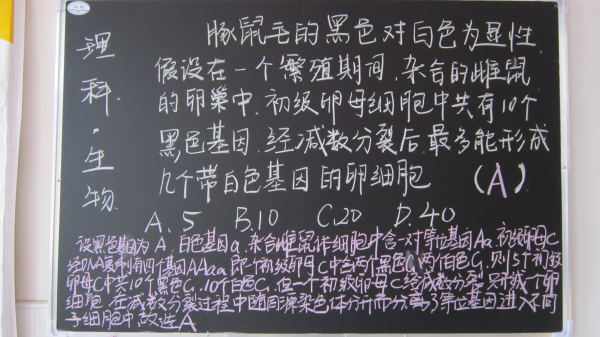 理科·生物
豚鼠毛的黑色对白色为显性.
假设在一个繁殖期间.杂合的雌鼠
的卵巢中.初级卵母细胞中共有10个
黑色基因.经减数分裂后.最多能形成
几个带白色基因的卵细胞 (A)
A、5 B.10 C.20 D.40
设黑色基因为A.白色基因a.杂合雌鼠体细胞中含一对等位基因Aa.初级卵母C
经DNA复制有四个基因AAaa 即一个初级卵母C中含两个黑色C.两个白色C.则5个初级
卵母C中共10个黑色C.10个白色C.但一个初级卵母C经减数分裂.只形成一个卵
细胞.在减数分裂过程中随同源染色体分开而分离了等位基因进入不同
子细胞中.故选A